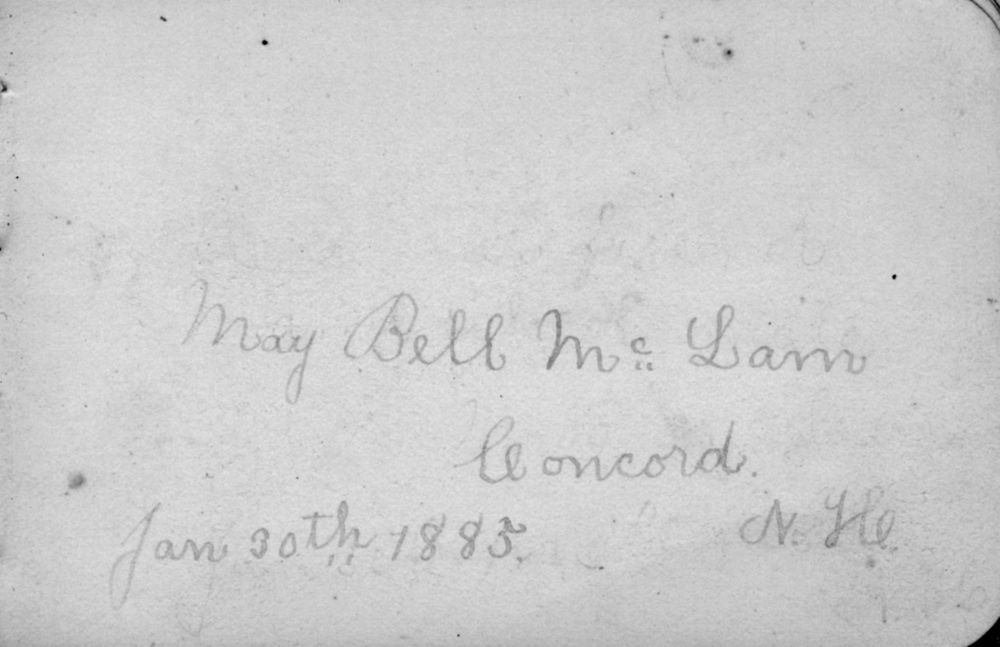 May Bell Mc. Lam
Concord.
Jan 30th 1885. N. H.